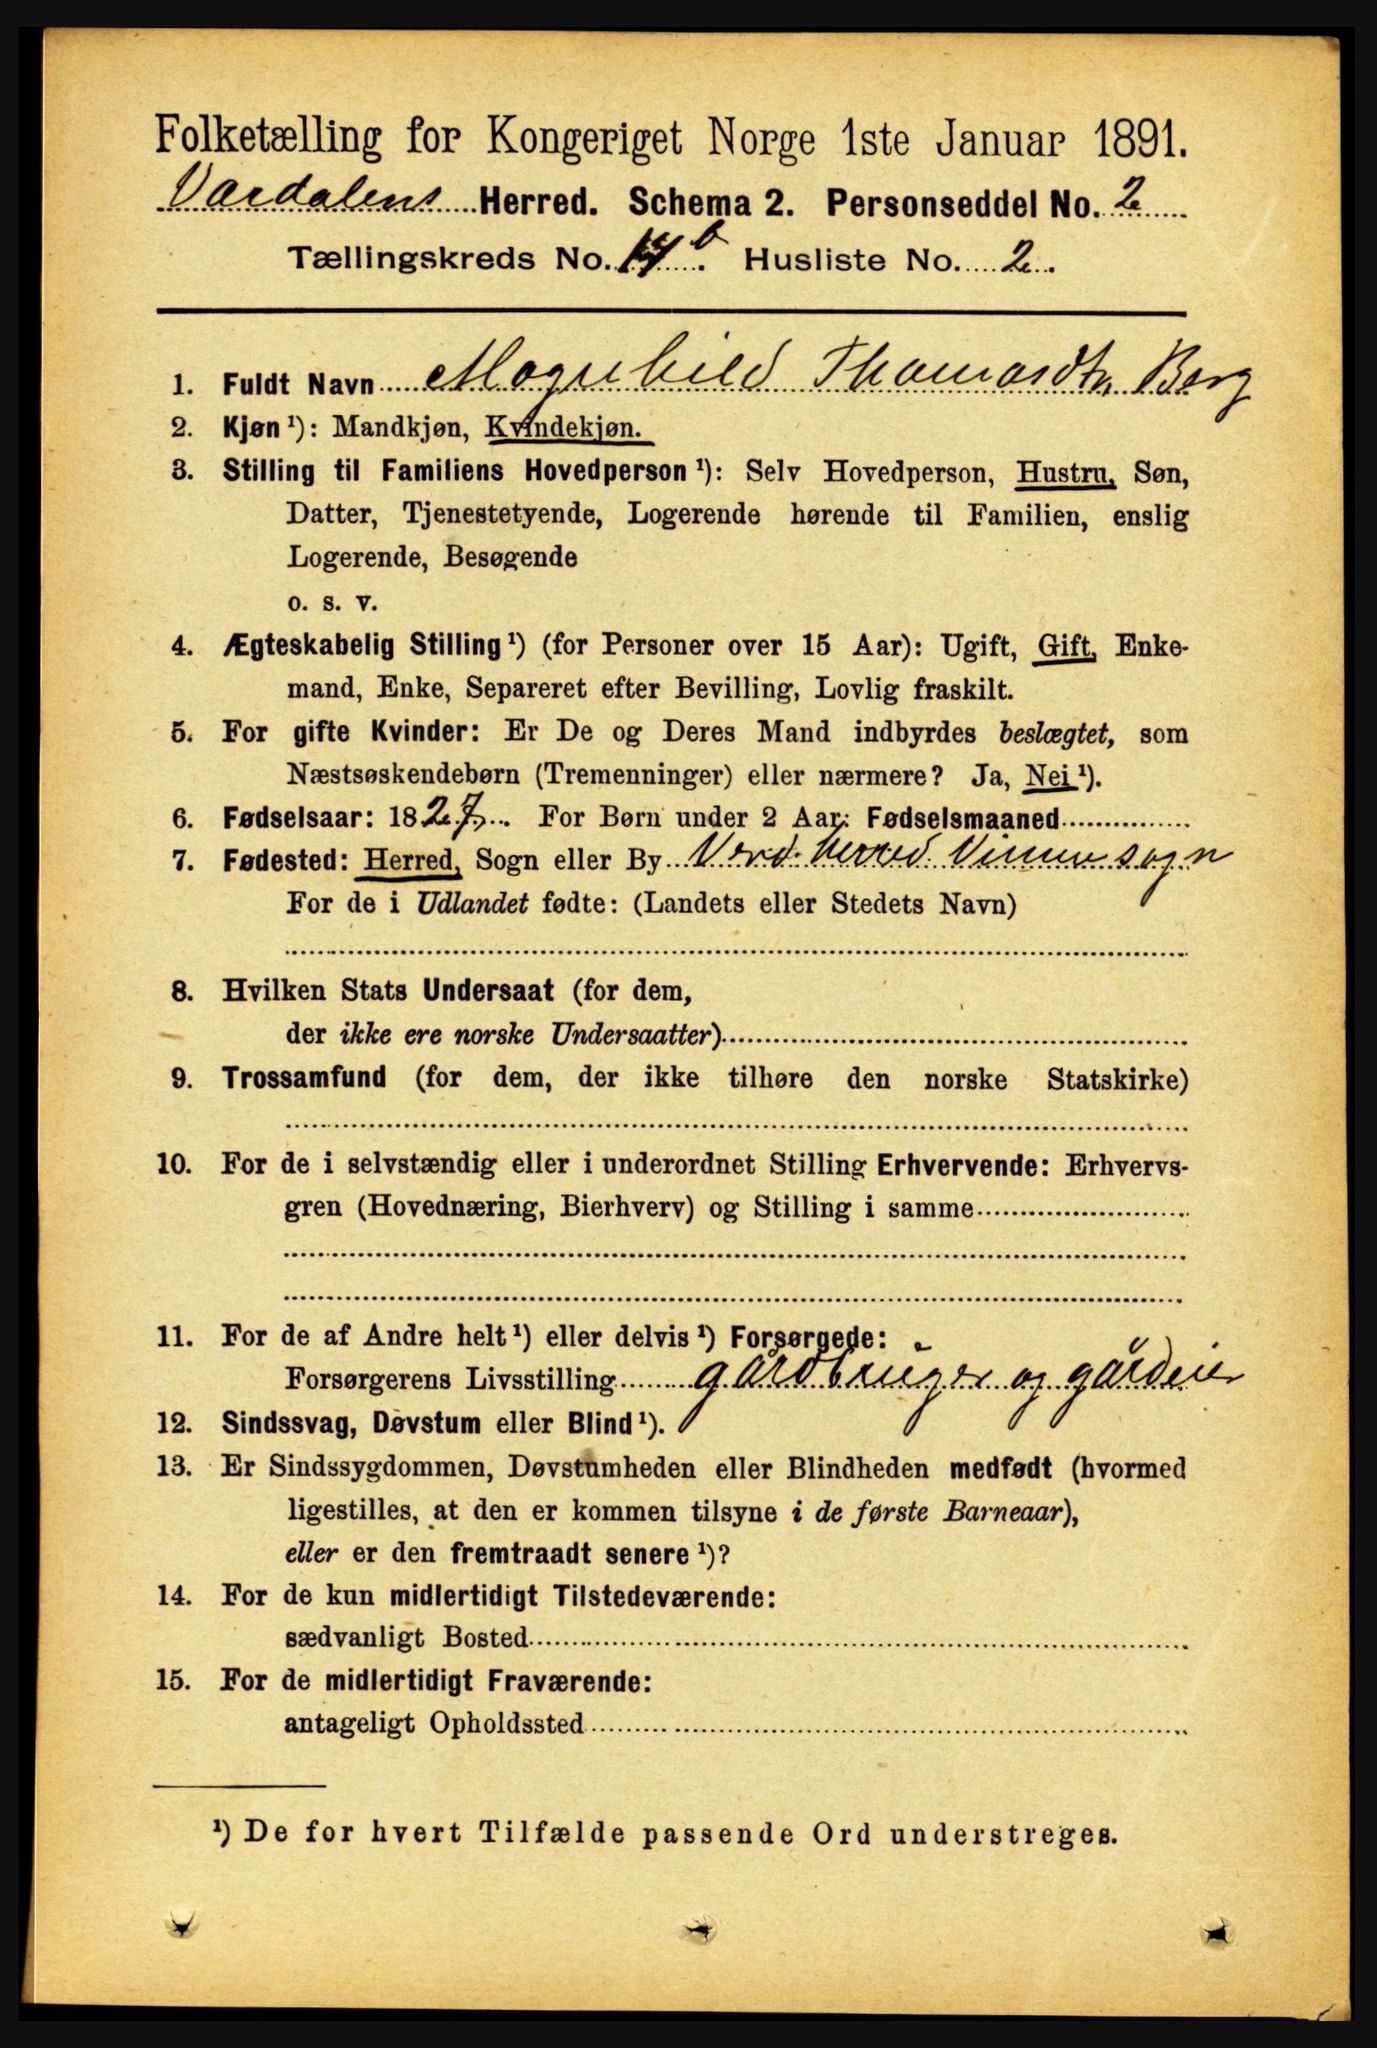 Folketælling for Kongeriget Norge 1ste Januar 1891.
Værdalens Herred. Schema 2. Personseddel No. 2
Tællingskreds No. 14 b. Husliste No. 2.
1. Fuldt Navn Magnhild Thomasdtr. Berg
2. Kjøn ¹): Mandkjøn, Kvindekjøn.
3. Stilling til Familiens Hovedperson ¹): Selv Hovedperson, Hustru, Søn,
Datter, Tjenestetyende, Logerende hørende til Familien, enslig
Logerende, Besøgende
o. s. v.
4. Ægteskabelig Stilling ¹) (for Personer over 15 Aar): Ugift, Gift, Enke-
mand, Enke, Separeret efter Bevilling, Lovlig fraskilt.
5. For gifte Kvinder: Er De og Deres Mand indbyrdes beslægtet, som
Næstsøskendebørn (Tremenninger) eller nærmere? Ja, Nei ¹).
6. Fødselsaar: 1827. For Børn under 2 Aar: Fødselsmaaned
7. Fødested: Herred, Sogn eller By Verd. herred Vinne sogn
For de i Udlandet fødte: (Landets eller Stedets Navn)
8. Hvilken Stats Undersaat (for dem,
der ikke ere norske Undersaatter)
9. Trossamfund (for dem, der ikke tilhøre den norske Statskirke)
10. For de i selvstændig eller i underordnet Stilling Erhvervende: Erhvervs-
gren (Hovednæring, Bierhverv) og Stilling i samme
11. For de af Andre helt ¹) eller delvis ¹) Forsørgede:
Forsørgerens Livsstilling gårdbruger og gårdeier
12. Sindssvag, Døvstum eller Blind ¹).
13. Er Sindssygdommen, Døvstumheden eller Blindheden medfødt (hvormed
ligestilles, at den er kommen tilsyne i de første Barneaar),
eller er den fremtraadt senere ¹)?
14. For de kun midlertidigt Tilstedeværende:
sædvanligt Bosted
15. For de midlertidigt Fraværende:
antageligt Opholdssted
¹) De for hvert Tilfælde passende Ord understreges.